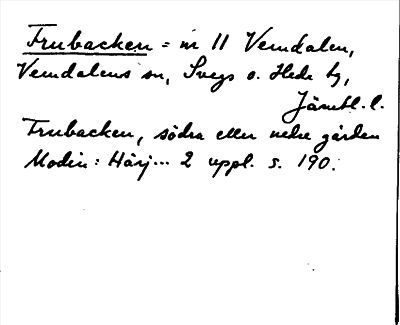 Frubacken = nr 11 Vemdalen,
Vemdalens sn, Svegs o. Hede tg,
Jämtl. l.
Frubacken, södra eller nedre gården
Modin: Härj... 2 uppl. s. 190.